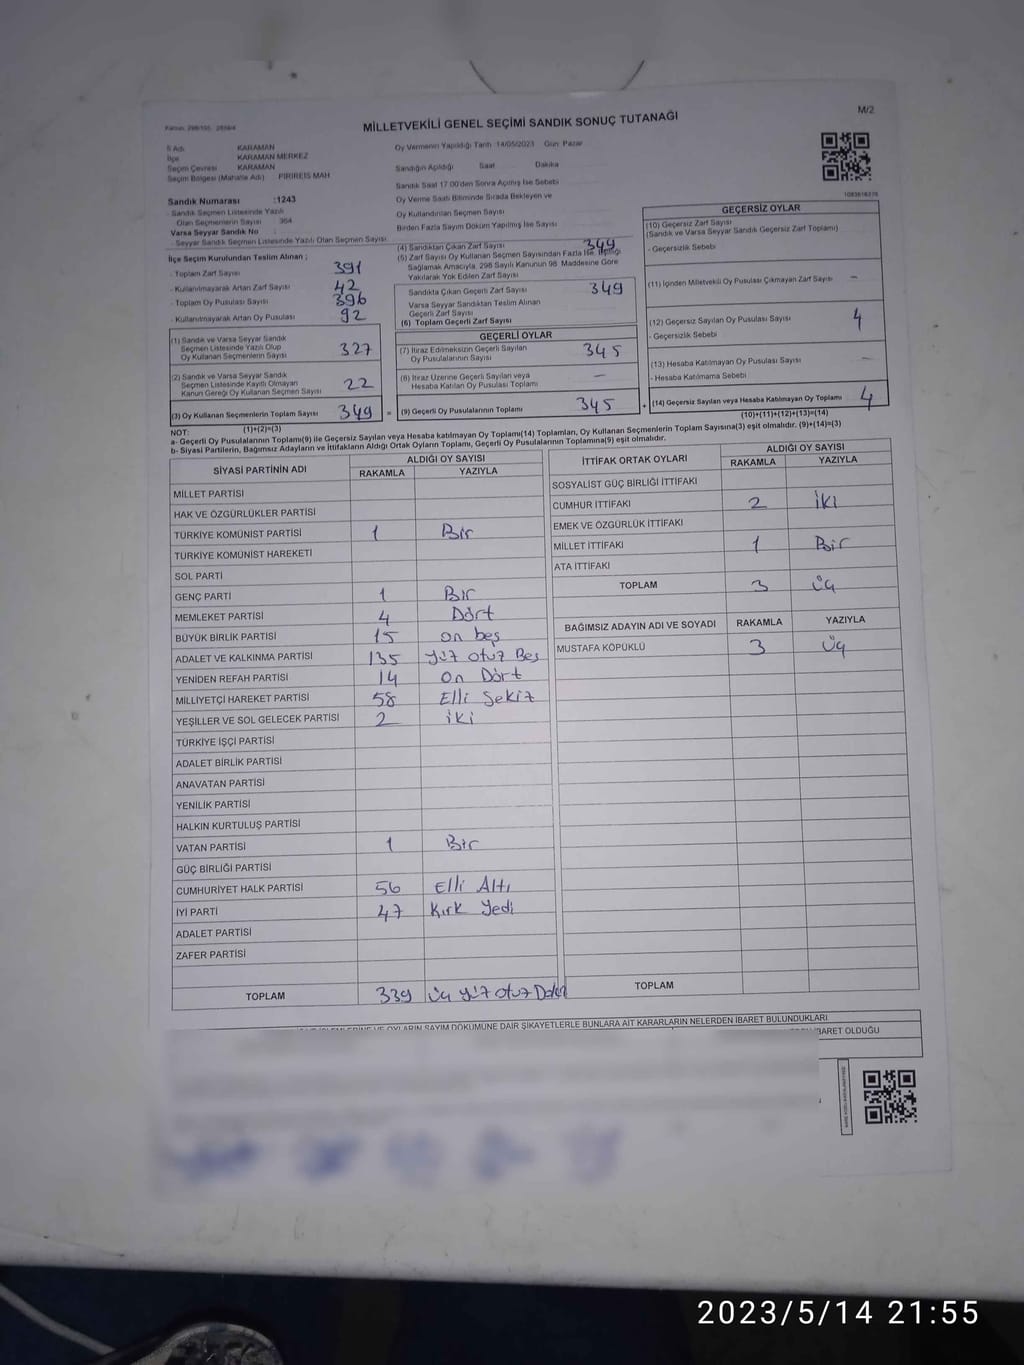 M/2
MİLLETVEKİLİ GENEL SEÇİMİ SANDIK SONUÇ TUTANAĞI
İl Adı KARAMAN
İlçe KARAMAN MERKEZ
Seçim Çevresi KARAMAN
Seçim Bölgesi (Mahalle Adı) PİRİREİS MAH.
Oy Vermenin Yapıldığı Tarih 14/05/2023 Gün Pazar
Sandığın Açıldığı Saat Dakika
Sandık Saat 17:00'den Sonra Açılmış İse Sebebi
Oy Verme Saati Bitiminde Sırada Bekleyen ve
Oy Kullandırılan Seçmen Sayısı
Birden Fazla Sayım Döküm Yapılmış İse Sayısı
Sandık Numarası :1243
Sandık Seçmen Listesinde Yazılı
Olan Seçmenlerin Sayısı : 364
Varsa Seyyar Sandık No :
Seyyar Sandık Seçmen Listesinde Yazılı Olan Seçmen Sayısı
İlçe Seçim Kurulundan Teslim Alınan ;
- Toplam Zarf Sayısı 391
- Kullanılmayarak Artan Zarf Sayısı 42
- Toplam Oy Pusulası Sayısı 396
- Kullanılmayarak Artan Oy Pusulası 92
(1) Sandık ve Varsa Seyyar Sandık
Seçmen Listesinde Yazılı Olup
Oy Kullanan Seçmenlerin Sayısı 327
(2) Sandık ve Varsa Seyyar Sandık
Seçmen Listesinde Kayıtlı Olmayan
Kanun Gereği Oy Kullanan Seçmen Sayısı 22
(3) Oy Kullanan Seçmenlerin Toplam Sayısı 349 =
(1)+(2)=(3)
(4) Sandıktan Çıkan Zarf Sayısı 349
(5) Zarf Sayısı Oy Kullanan Seçmen Sayısından Fazla İse, Eşitliği
Sağlamak Amacıyla, 298 Sayılı Kanunun 98. Maddesine Göre
Yakılarak Yok Edilen Zarf Sayısı
Sandıkta Çıkan Geçerli Zarf Sayısı 349
Varsa Seyyar Sandıktan Teslim Alınan
Geçerli Zarf Sayısı
(6) Toplam Geçerli Zarf Sayısı
GEÇERLİ OYLAR
(7) İtiraz Edilmeksizin Geçerli Sayılan
Oy Pusulalarının Sayısı 345
(8) İtiraz Üzerine Geçerli Sayılan veya
Hesaba Katılan Oy Pusulası Toplamı —
(9) Geçerli Oy Pusulalarının Toplamı 345 +
1083616376
GEÇERSİZ OYLAR
(10) Geçersiz Zarf Sayısı
(Sandık ve Varsa Seyyar Sandık Geçersiz Zarf Toplamı)
- Geçersizlik Sebebi
(11) İçinden Milletvekili Oy Pusulası Çıkmayan Zarf Sayısı —
(12) Geçersiz Sayılan Oy Pusulası Sayısı 4
- Geçersizlik Sebebi
(13) Hesaba Katılmayan Oy Pusulası Sayısı —
- Hesaba Katılmama Sebebi
(14) Geçersiz Sayılan veya Hesaba Katılmayan Oy Toplamı 4
(10)+(11)+(12)+(13)=(14)
NOT:
a- Geçerli Oy Pusulalarının Toplamı(9) ile Geçersiz Sayılan veya Hesaba katılmayan Oy Toplamı(14) Toplamları, Oy Kullanan Seçmenlerin Toplam Sayısına(3) eşit olmalıdır. (9)+(14)=(3)
b- Siyasi Partilerin, Bağımsız Adayların ve İttifakların Aldığı Ortak Oyların Toplamı, Geçerli Oy Pusulalarının Toplamına(9) eşit olmalıdır.
SİYASİ PARTİNİN ADI ALDIĞI OY SAYISI
RAKAMLA YAZIYLA
MİLLET PARTİSİ
HAK VE ÖZGÜRLÜKLER PARTİSİ
TÜRKİYE KOMÜNİST PARTİSİ 1 Bir
TÜRKİYE KOMÜNİST HAREKETİ
SOL PARTİ
GENÇ PARTİ 1 Bir
MEMLEKET PARTİSİ 4 Dört
BÜYÜK BİRLİK PARTİSİ 15 on beş
ADALET VE KALKINMA PARTİSİ 135 yüz otuz Beş
YENİDEN REFAH PARTİSİ 14 On Dört
MİLLİYETÇİ HAREKET PARTİSİ 58 Elli Sekiz
YEŞİLLER VE SOL GELECEK PARTİSİ 2 iki
TÜRKİYE İŞÇİ PARTİSİ
ADALET BİRLİK PARTİSİ
ANAVATAN PARTİSİ
YENİLİK PARTİSİ
HALKIN KURTULUŞ PARTİSİ
VATAN PARTİSİ 1 Bir
GÜÇ BİRLİĞİ PARTİSİ
CUMHURİYET HALK PARTİSİ 56 Elli Altı
İYİ PARTİ 47 Kırk Yedi
ADALET PARTİSİ
ZAFER PARTİSİ
TOPLAM 339 üç yüz otuz
İTTİFAK ORTAK OYLARI ALDIĞI OY SAYISI
RAKAMLA YAZIYLA
SOSYALİST GÜÇ BİRLİĞİ İTTİFAKI
CUMHUR İTTİFAKI 2 iki
EMEK VE ÖZGÜRLÜK İTTİFAKI
MİLLET İTTİFAKI 1 Bir
ATA İTTİFAKI
TOPLAM 3 üç
BAĞIMSIZ ADAYIN ADI VE SOYADI RAKAMLA YAZIYLA
MUSTAFA KÖPÜKLÜ 3 Üç
TOPLAM
OYLARIN SAYIM DÖKÜMÜNE DAİR ŞİKAYETLERLE BUNLARA AİT KARARLARIN NELERDEN İBARET BULUNDUKLARI
İBARET OLDUĞU
2023/5/14 21:55